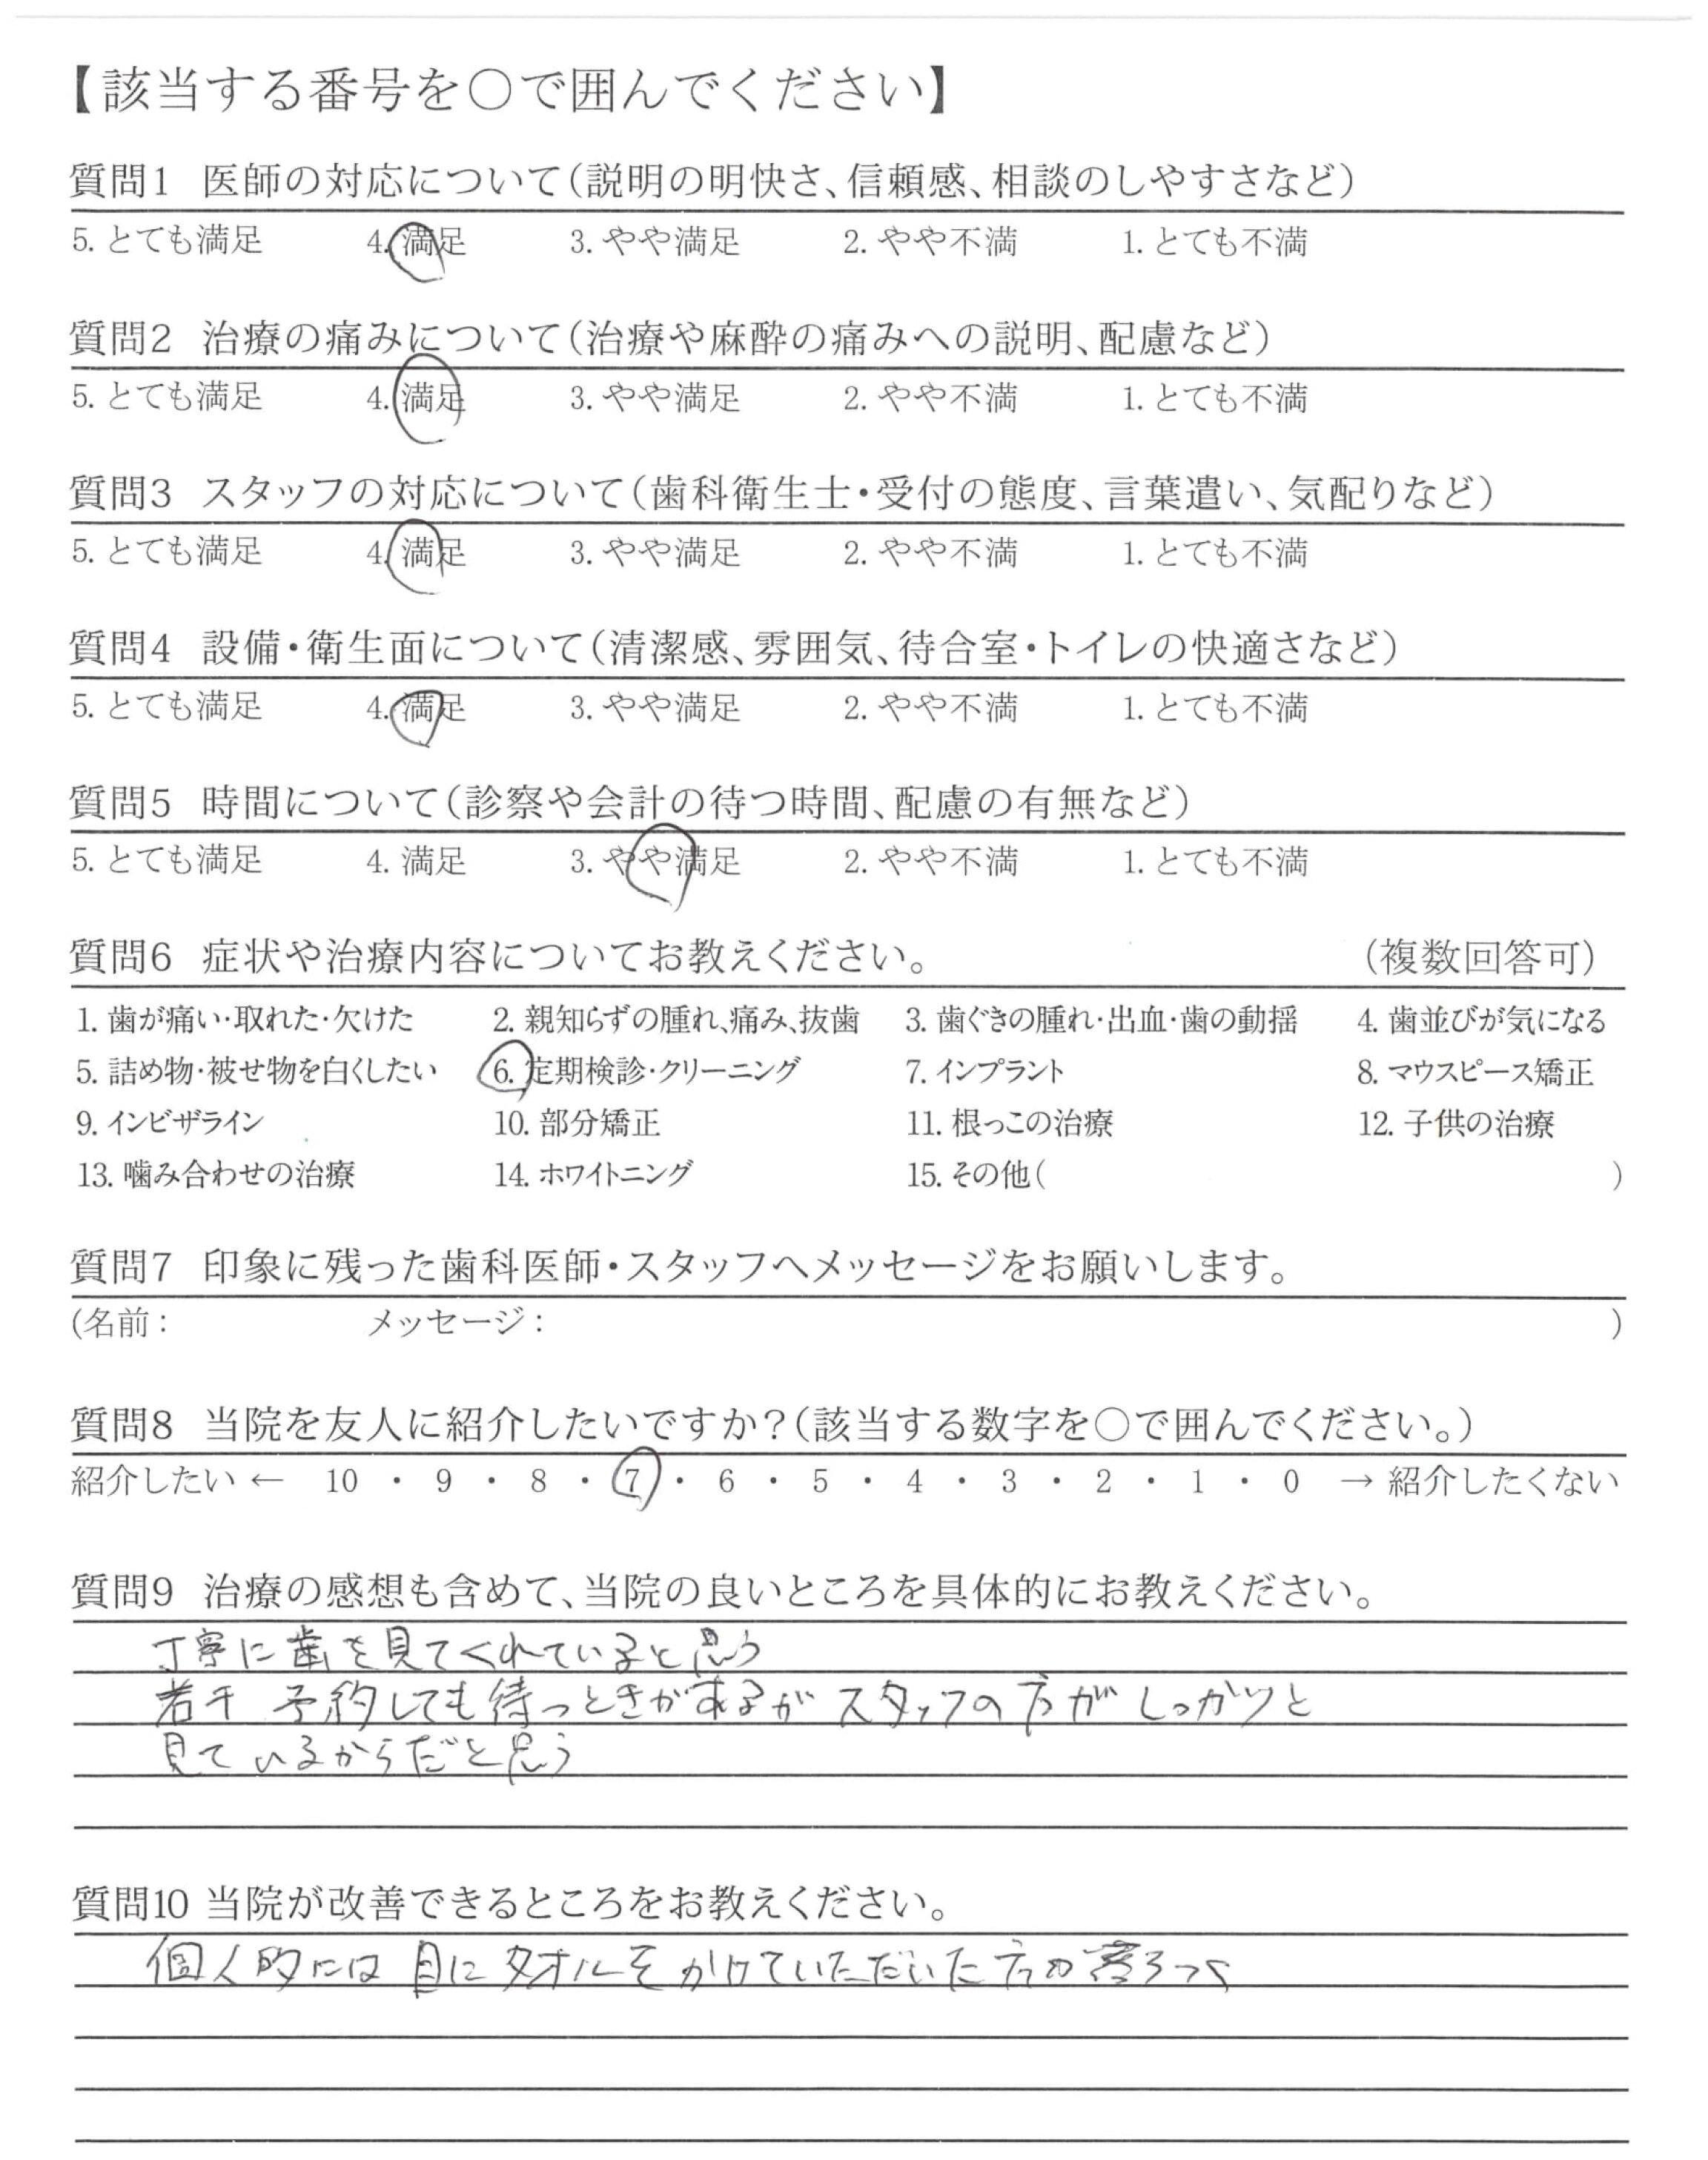 【該当する番号を○で囲んでください】
質問1 医師の対応について(説明の明快さ、信頼感、相談のしやすさなど)
5. とても満足 4. 満足 3. やや満足 2. やや不満 1. とても不満
質問2 治療の痛みについて(治療や麻酔の痛みへの説明、配慮など)
5. とても満足 4. 満足 3. やや満足 2. やや不満 1. とても不満
質問3 スタッフの対応について(歯科衛生士・受付の態度、言葉遣い、気配りなど)
5. とても満足 4. 満足 3. やや満足 2. やや不満 1. とても不満
質問4 設備・衛生面について(清潔感、雰囲気、待合室・トイレの快適さなど)
5. とても満足 4. 満足 3. やや満足 2. やや不満 1. とても不満
質問5 時間について(診察や会計の待つ時間、配慮の有無など)
5. とても満足 4. 満足 3. やや満足 2. やや不満 1. とても不満
質問6 症状や治療内容についてお教えください。 (複数回答可)
1. 歯が痛い・取れた・欠けた 2. 親知らずの腫れ、痛み、抜歯 3. 歯ぐきの腫れ・出血・歯の動揺 4. 歯並びが気になる
5. 詰め物・被せ物を白くしたい 6. 定期検診・クリーニング 7. インプラント 8. マウスピース矯正
9. インビザライン 10. 部分矯正 11. 根っこの治療 12. 子供の治療
13. 噛み合わせの治療 14. ホワイトニング 15. その他( )
質問7 印象に残った歯科医師・スタッフへメッセージをお願いします。
(名前: メッセージ: )
質問8 当院を友人に紹介したいですか?(該当する数字を○で囲んでください。)
紹介したい ← 10 ・ 9 ・ 8 ・ 7 ・ 6 ・ 5 ・ 4 ・ 3 ・ 2 ・ 1 ・ 0 → 紹介したくない
質問9 治療の感想も含めて、当院の良いところを具体的にお教えください。
丁寧に歯を見てくれていると思う
若干 予約しても待つときがあるが スタッフの方がしっかりと
見ているからだと思う
質問10 当院が改善できるところをお教えください。
個人的には 目にタオルをかけていただいた方が